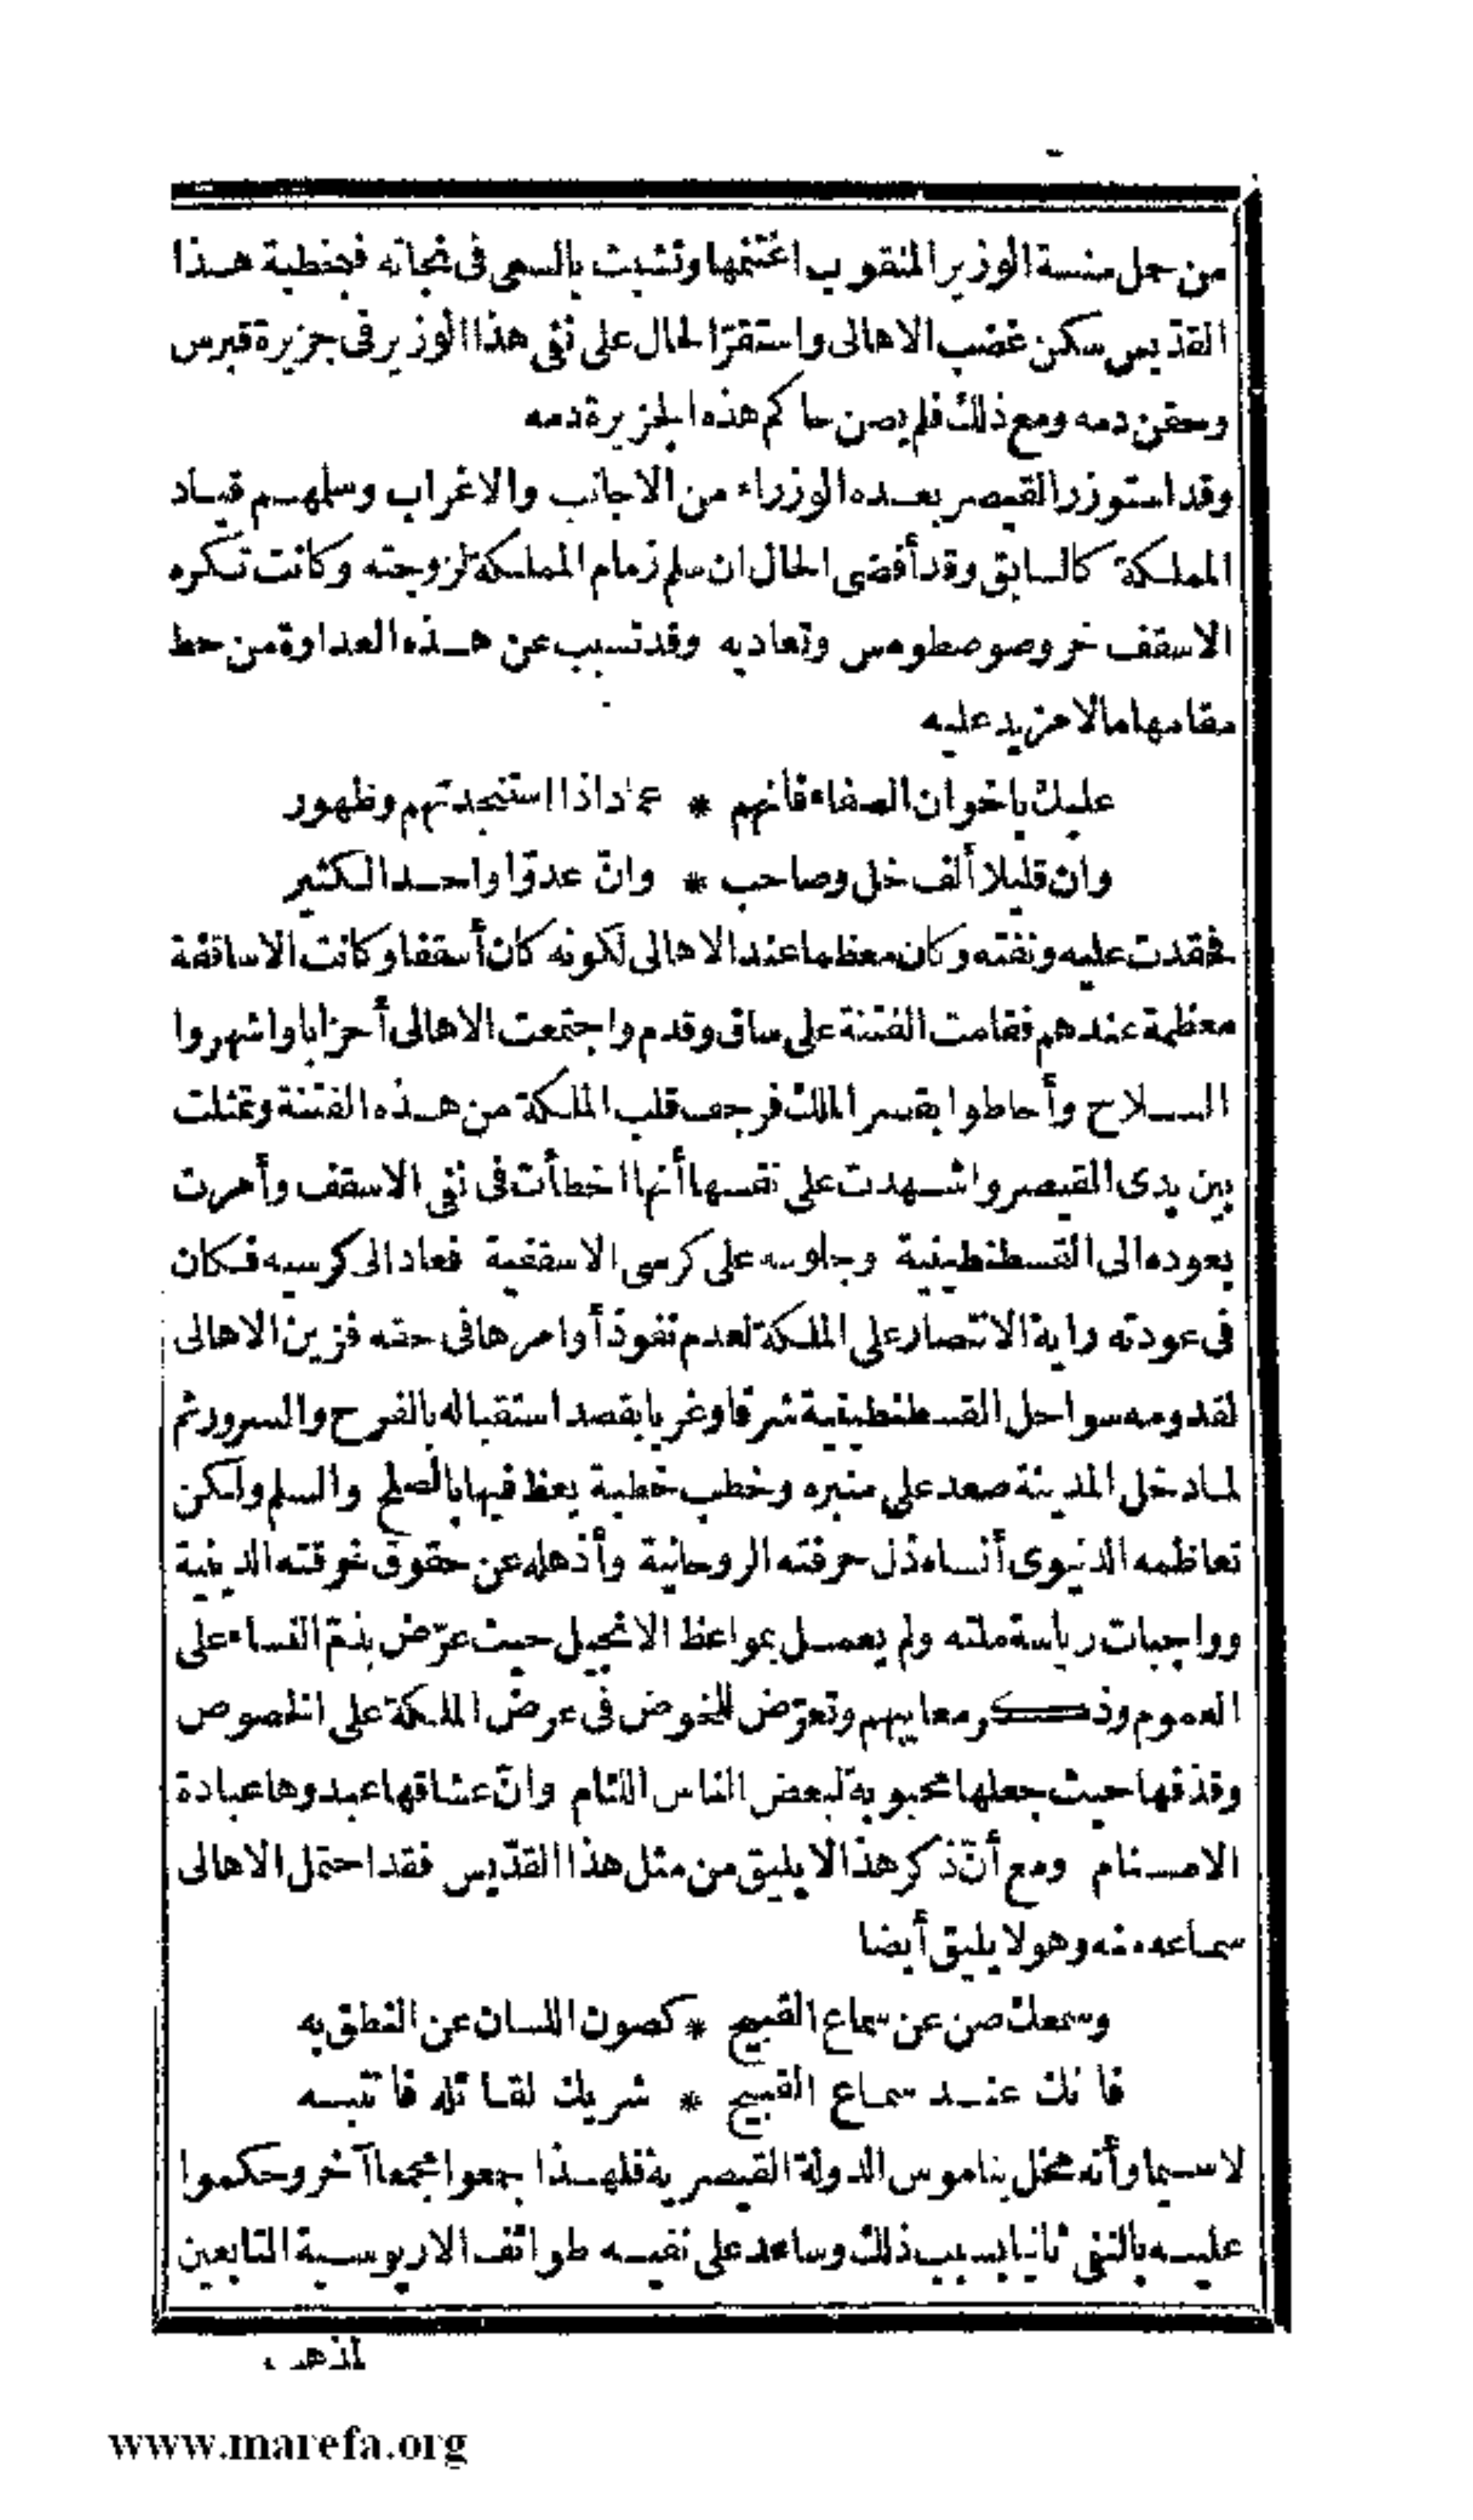 من حل منسة الوزير المنقوب اغتنمها وتشبث بالسعى فى نجاته فبخطبة هذا
القديس سكن غضب الاهالى واستقرّ الحال على نفى هذا الوزير فى جزيرة قبرس
وحقن دمه ومع ذلك فلم يصن حاكم هذه الجزيرة دمه
وقد استوزر القيصر بعده الوزراء من الاجانب والاغراب وسلمهم قياد
المملكة كالسابق وقد أفضى الحال ان سلم زمام المملكة لزوجته وكانت تكره
الاسقف خروصوصطومس وتعاديه وقد تسبب عن هذه العداوة من حط
مقامها مالا مزيد عليه
عليك باخوان الصفاء فانهم * عماد اذا استنجدتهم وظهور
وان قليلا ألف خل وصاحب * وانّ عدوّا واحدا لكثير
فحقدت عليه ونفته وكان معظما عند الاهالى لكونه كان أسقفا وكانت الاساقفة
معظمة عندهم فقامت الفتنة على ساق وقدم واجتمعت الاهالى أحزابا واشهروا
السلاح وأحاطوا بقصر الملك فرجف قلب الملكة من هذه الفتنة وتمثلت
بين يدى القيصر واشهدت على نفسها أنها اخطأت فى نفى الاسقف وأمرت
بعوده الى القسطنطينية وجلوسه على كرسى الاسقفية فعاد الى كرسيه فكان
فى عودته راية الانتصار على الملكة لعدم نفوذ أوامرها فى حقه فزين الاهالى
لقدومه سواحل القسطنطينية شرقا وغربا بقصد استقباله بالفرح والسرور ثم
لما دخل المدينة صعد على منبره وخطب خطبة يعظ فيها بالصلح والسلم ولكن
تعاظمه الدنيوى أنساه ذل حرفته الروحانية وأذهله عن حقوق خرقته الدينية
وواجبات رياسة ملته ولم يعمل بمواعظ الانجيل حيث عرّض بذمّ النساء على
العموم وذكر معايبهم وتعرّض للخوض فى عرض الملكة على الخصوص
وقذفها حيث جعلها محبوبة لبعض الناس اللئام وانّ عشاقها عبدوها عبادة
الاصنام ومع أنّ ذكر هذا لا يليق من مثل هذا القدّيس فقد احتمل الاهالى
سماعه منه وهو لا يليق أيضا
وسمعك صن عن سماع القبيح * كصون اللسان عن النطق به
فانك عند سماع القبيح * شريك لقائله فانتبه
لاسيما وأنه مخل بناموس الدولة القيصرية فلهذا جمعوا مجمعا آخر وحكموا
عليه بالنفى ثانيا بسبب ذلك وساعد على نفيه طوائف الاريوسية التابعين
لذهب
www.marefa.org